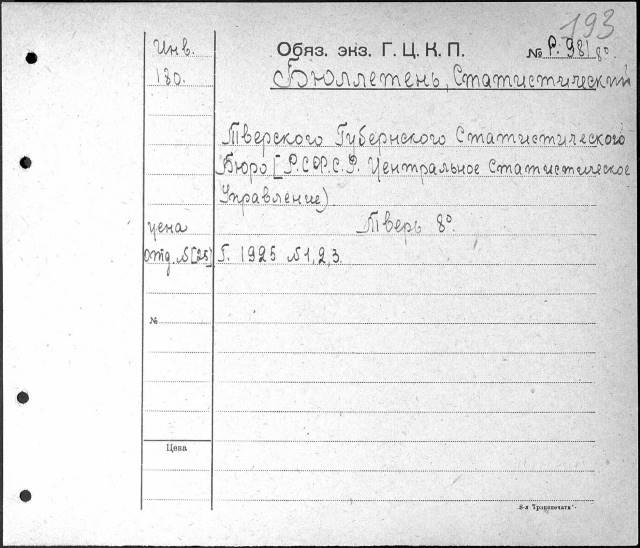 193
Инв.
Обяз. экз. Г. Ц. К. П.
№ Р. 981 8°
180.
Бюллетень, Статистический
Тверского Губернского Статистического
Бюро [Р.С.Ф.С.Р. Центральное Статистическое
Управление)
цена
Тверь 8°.
отд. № [25]
Г. 1925 №1,2,3.
№
Цена